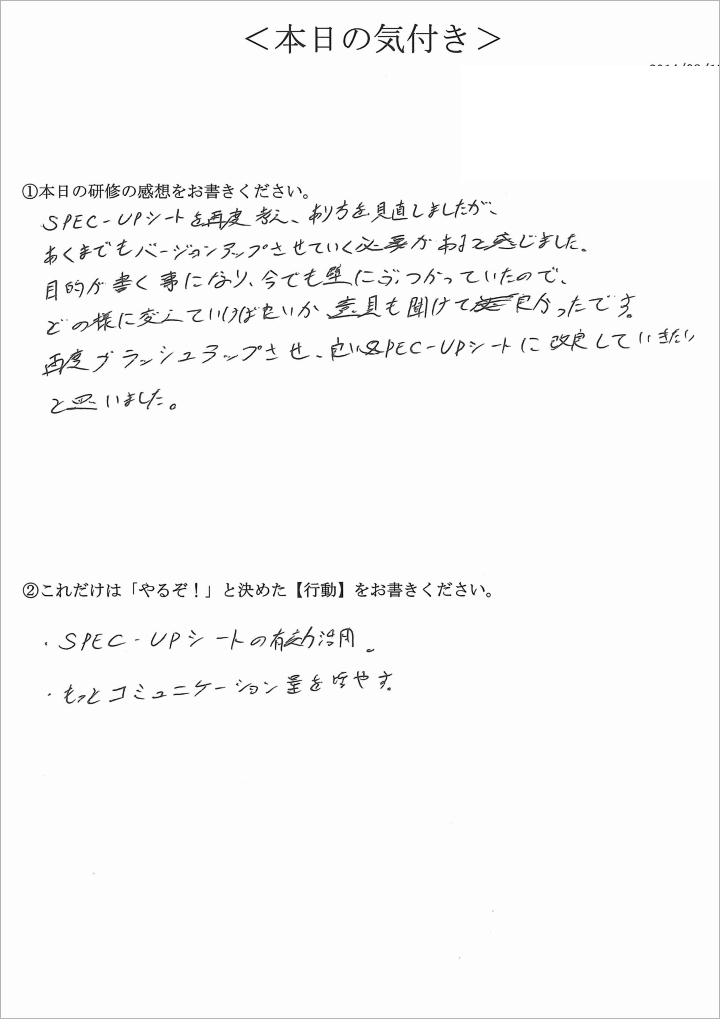 ＜本日の気付き＞
①本日の研修の感想をお書きください。
SPEC-UPシートを再度考え、あり方を見直しましたが、
あくまでもバージョンアップさせていく必要があると感じました。
目的が書く事になり、今でも壁にぶつかっていたので、
どの様に変えていけば良いか意見も聞けて良かったです。
再度ブラッシュアップさせ、良いSPEC-UPシートに改良していきたい
と思いました。
②これだけは「やるぞ！」と決めた【行動】をお書きください。
・SPEC-UPシートの有効活用。
・もっとコミュニケーション量を増やす。